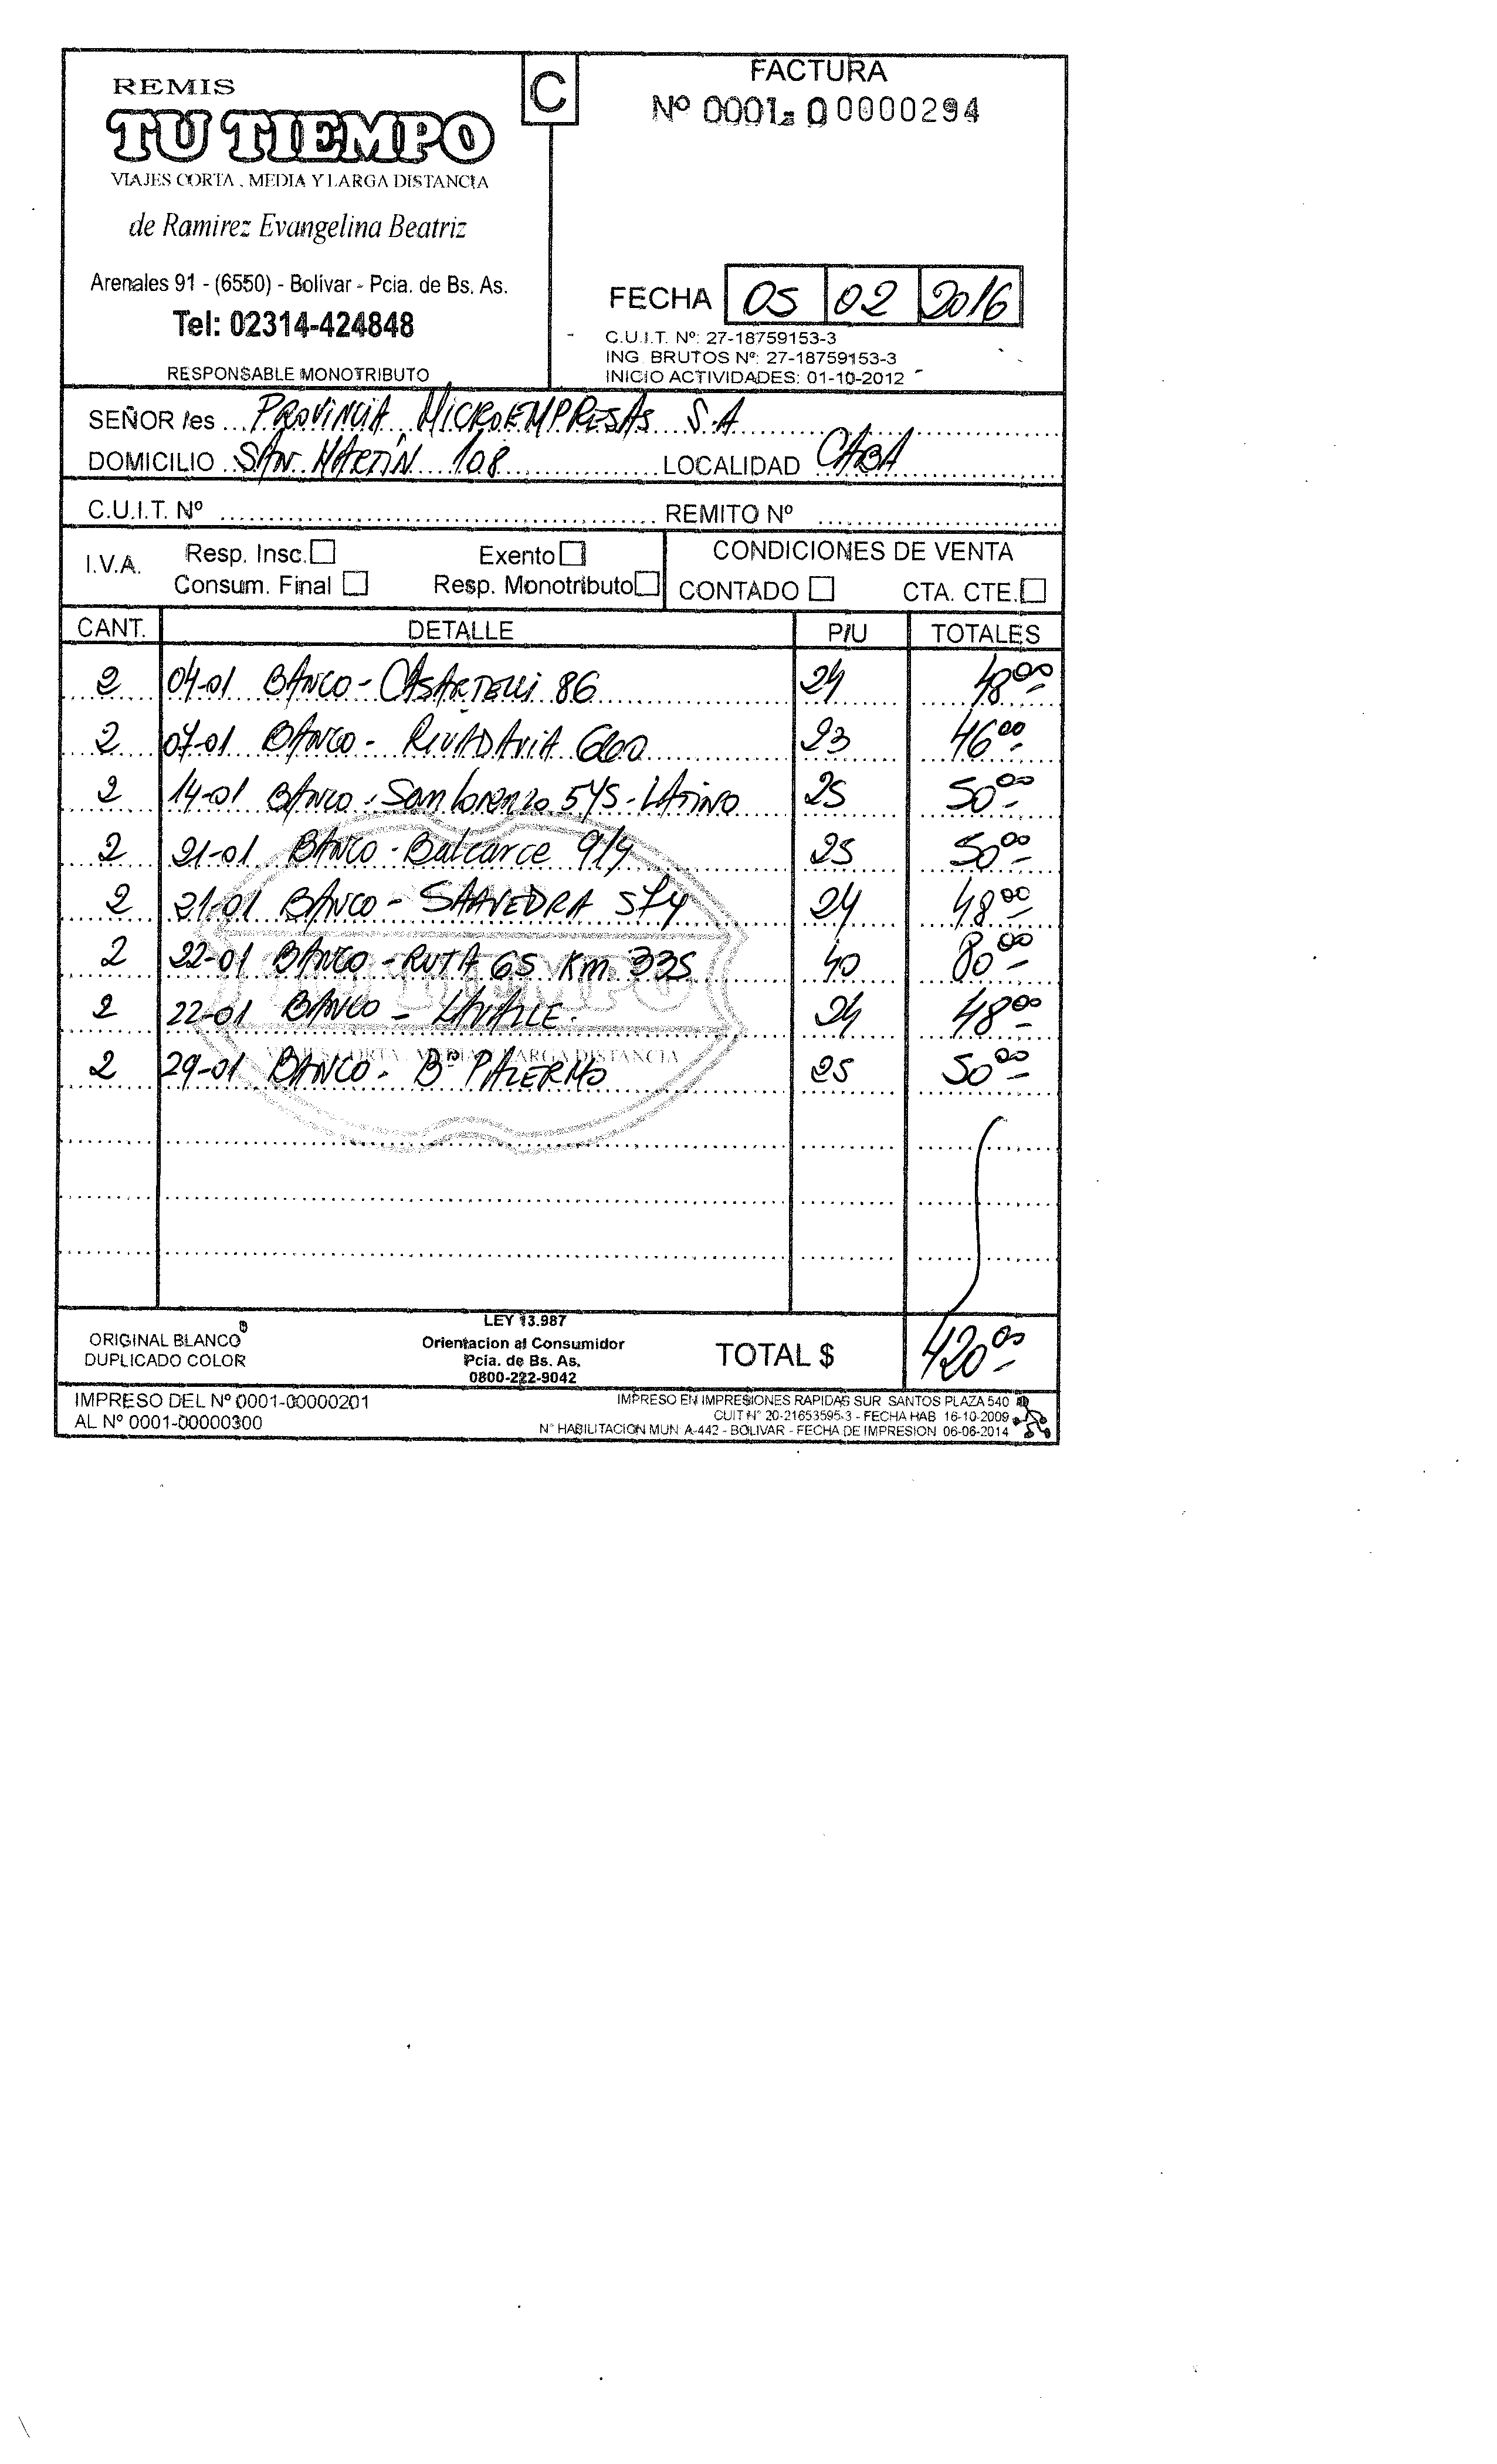 REMIS
TU TIEMPO
VIAJES CORTA, MEDIA Y LARGA DISTANCIA
de Ramirez Evangelina Beatriz
Arenales 91 - (6550) - Bolívar - Pcia. de Bs. As.
Tel: 02314-424848
RESPONSABLE MONOTRIBUTO
C
FACTURA
Nº 0001-00000294
FECHA 05 02 2016
C.U.I.T. Nº: 27-18759153-3
ING. BRUTOS Nº: 27-18759153-3
INICIO ACTIVIDADES: 01-10-2012
SEÑOR/es PROVINCIA MICROEMPRESAS S.A
DOMICILIO SAN MARTÍN 108 LOCALIDAD CABA
C.U.I.T. Nº REMITO Nº
I.V.A. Resp. Insc. Exento CONDICIONES DE VENTA
Consum. Final Resp. Monotributo CONTADO CTA. CTE.
CANT. DETALLE P/U TOTALES
2 04-01 BANCO - CASARTELLI 86 24 48 00
2 07-01 BANCO - RIVADAVIA 660 23 46 00
2 14-01 BANCO - San Lorenzo 545 - LATINO 25 50 00
2 21-01 BANCO - Balcarce 914 25 50 00
2 21-01 BANCO - SAAVEDRA 574 24 48 00
2 22-01 BANCO - RUTA 65 Km 335 40 80 00
2 22-01 BANCO - LAVALLE. 24 48 00
2 29-01 BANCO - Bº PALERMO 25 50 00
TU TIEMPO
VIAJES CORTA, MEDIA Y LARGA DISTANCIA
ORIGINAL BLANCO
DUPLICADO COLOR
LEY 13.987
Orientacion al Consumidor
Pcia. de Bs. As.
0800-222-9042
TOTAL $ 420 00
IMPRESO DEL Nº 0001-00000201
AL Nº 0001-00000300
IMPRESO EN IMPRESIONES RAPIDAS SUR SANTOS PLAZA 540
CUIT Nº 20-21653595-3 - FECHA HAB 16-10-2009
Nº HABILITACION MUN A-442 - BOLIVAR - FECHA DE IMPRESION 06-06-2014